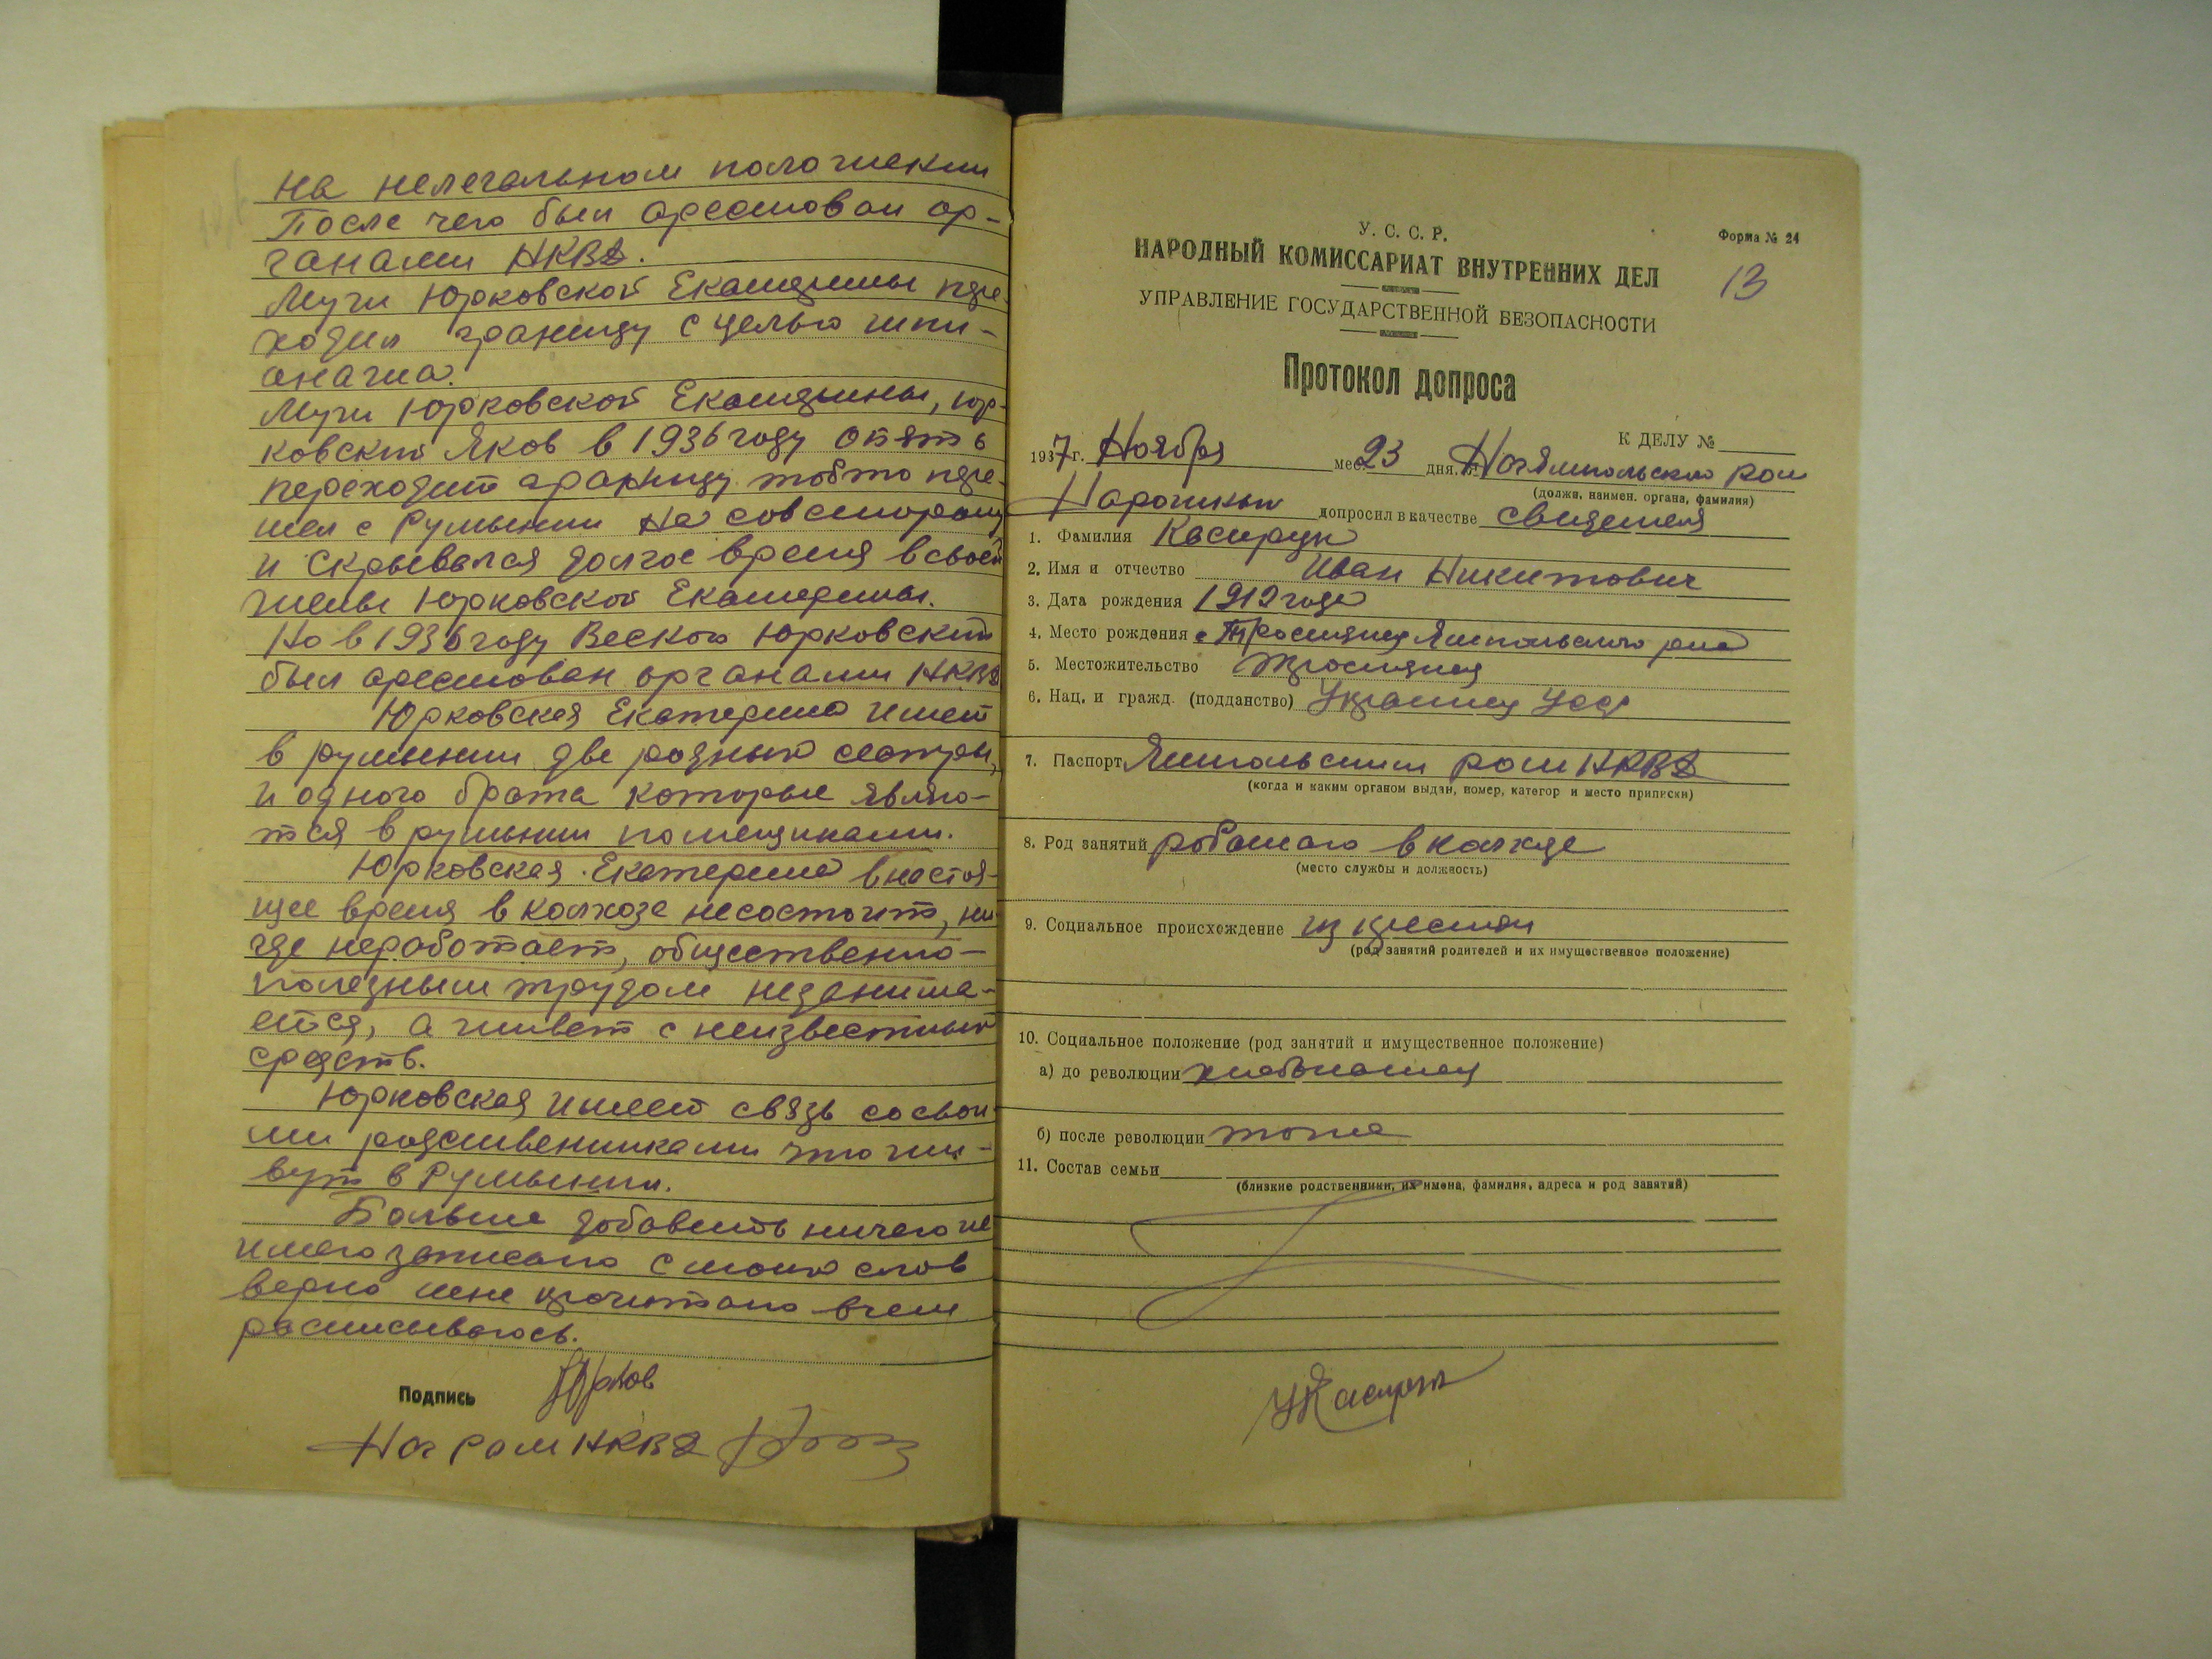 на нелегальном положении
После чего был арестован ор-
ганами НКВД.
Муж Юрковской Екатерины пере-
ходил границу с целью шпи-
онажа.
Муж Юрковской Екатерины, Юр-
ковский Яков в 1936 году опять
переходит границу тобто пере-
шел с Румынии на совсторону
и скрывался долгое время в своей
жены Юрковской Екатерины.
Но в 1936 году Весною Юрковский
был арестован органами НКВД
Юрковская Екатерина имеет
в румынии две родных сестры,
и одного брата которые явля-
тся в румынии помещиками.
Юрковская Екатерина внастоя-
щее время в колхозе несостоит, ни
где неработает, общественно-
полезным трудом незанима-
ется, а живет с неизвестных
средств.
Юрковская имеет связь сосвои
ми родственниками что жи-
вут в Румынии.
Больше добавить ничего не
имею записано с моих слов
верно мне прочитано вчем
расписываюсь.
Подпись
Нач РОМ НКВД
У. С. С. Р.
Форма № 24
НАРОДНЫЙ КОМИССАРИАТ ВНУТРЕННИХ ДЕЛ
13
УПРАВЛЕНИЕ ГОСУДАРСТВЕННОЙ БЕЗОПАСНОСТИ
Протокол допроса
К ДЕЛУ №
1937 г. Ноября мес. 23 дня. Нач Ямпольского РОМ
(должн. наимен. органа, фамилия)
допросил в качестве свидетеля
1. Фамилия
2. Имя и отчество Иван Никитович
3. Дата рождения 1912 года
4. Место рождения с Тростянец Ямпольского р-на
5. Местожительство Тростянец
6. Нац. и гражд. (подданство) Украинец УССР
7. Паспорт Ямпольским РОМ НКВД
(когда и каким органом выдан, номер, категор и место приписки)
8. Род занятий работаю в колхозе
(место службы и должность)
9. Социальное происхождение из крестян
(род занятий родителей и их имущественное положение)
10. Социальное положение (род занятий и имущественное положение)
а) до революции хлебопашец
б) после революции тоже
11. Состав семьи
(близкие родственники, их имена, фамилия, адреса и род занятий)